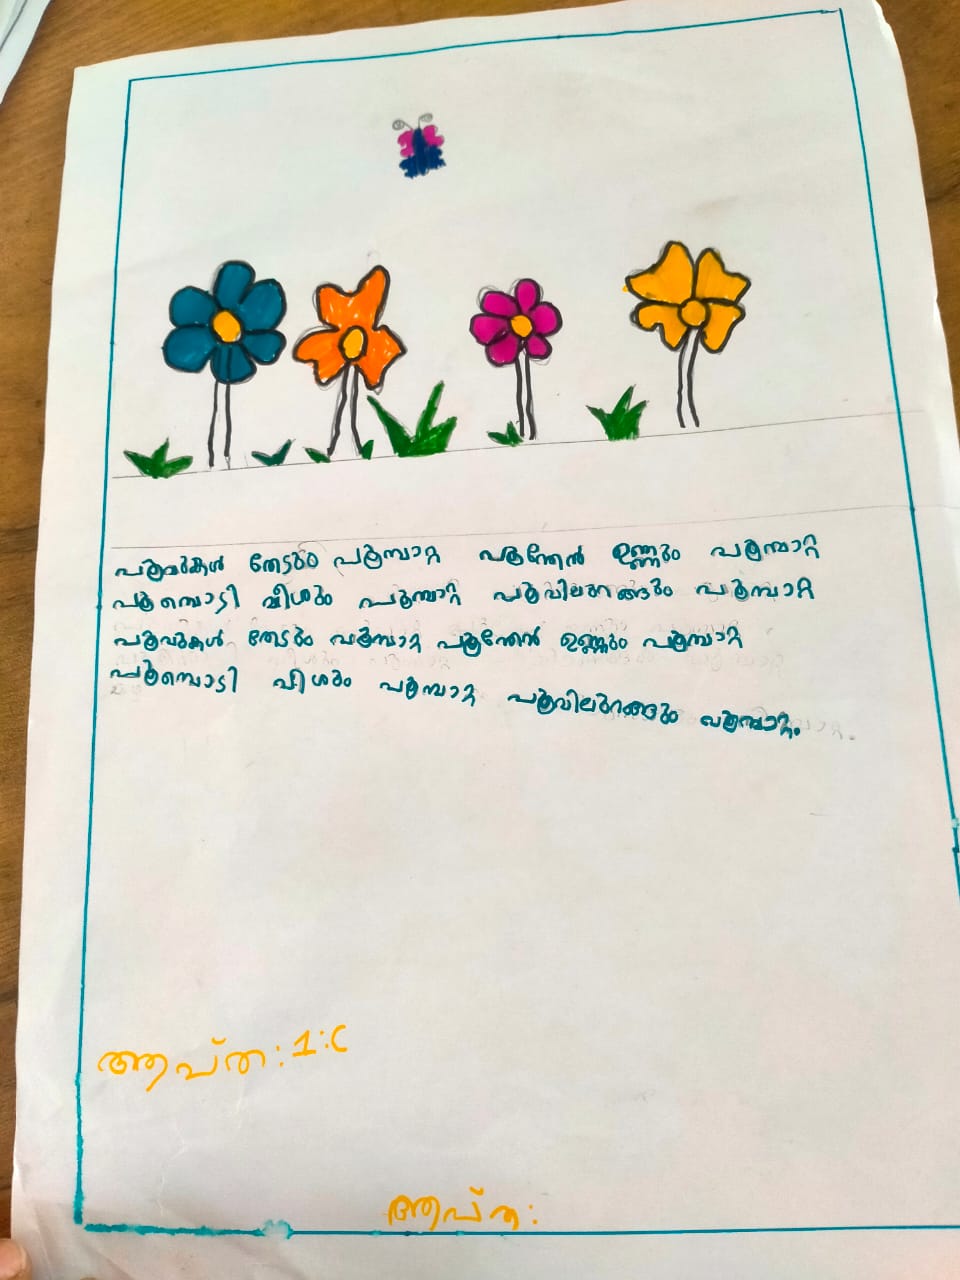 പൂവുകൾ തേടും പൂമ്പാറ്റ പൂന്തേൻ ഉണ്ണും പൂമ്പാറ്റ
പൂമ്പൊടി വീശും പൂമ്പാറ്റ പൂവിലുറങ്ങും പൂമ്പാറ്റ
പൂവുകൾ തേടും പൂമ്പാറ്റ പൂന്തേൻ ഉണ്ണും പൂമ്പാറ്റ
പൂമ്പൊടി വീശും പൂമ്പാറ്റ പൂവിലുറങ്ങും പൂമ്പാറ്റ.
ആപ്ത:1:C
ആപ്ത: